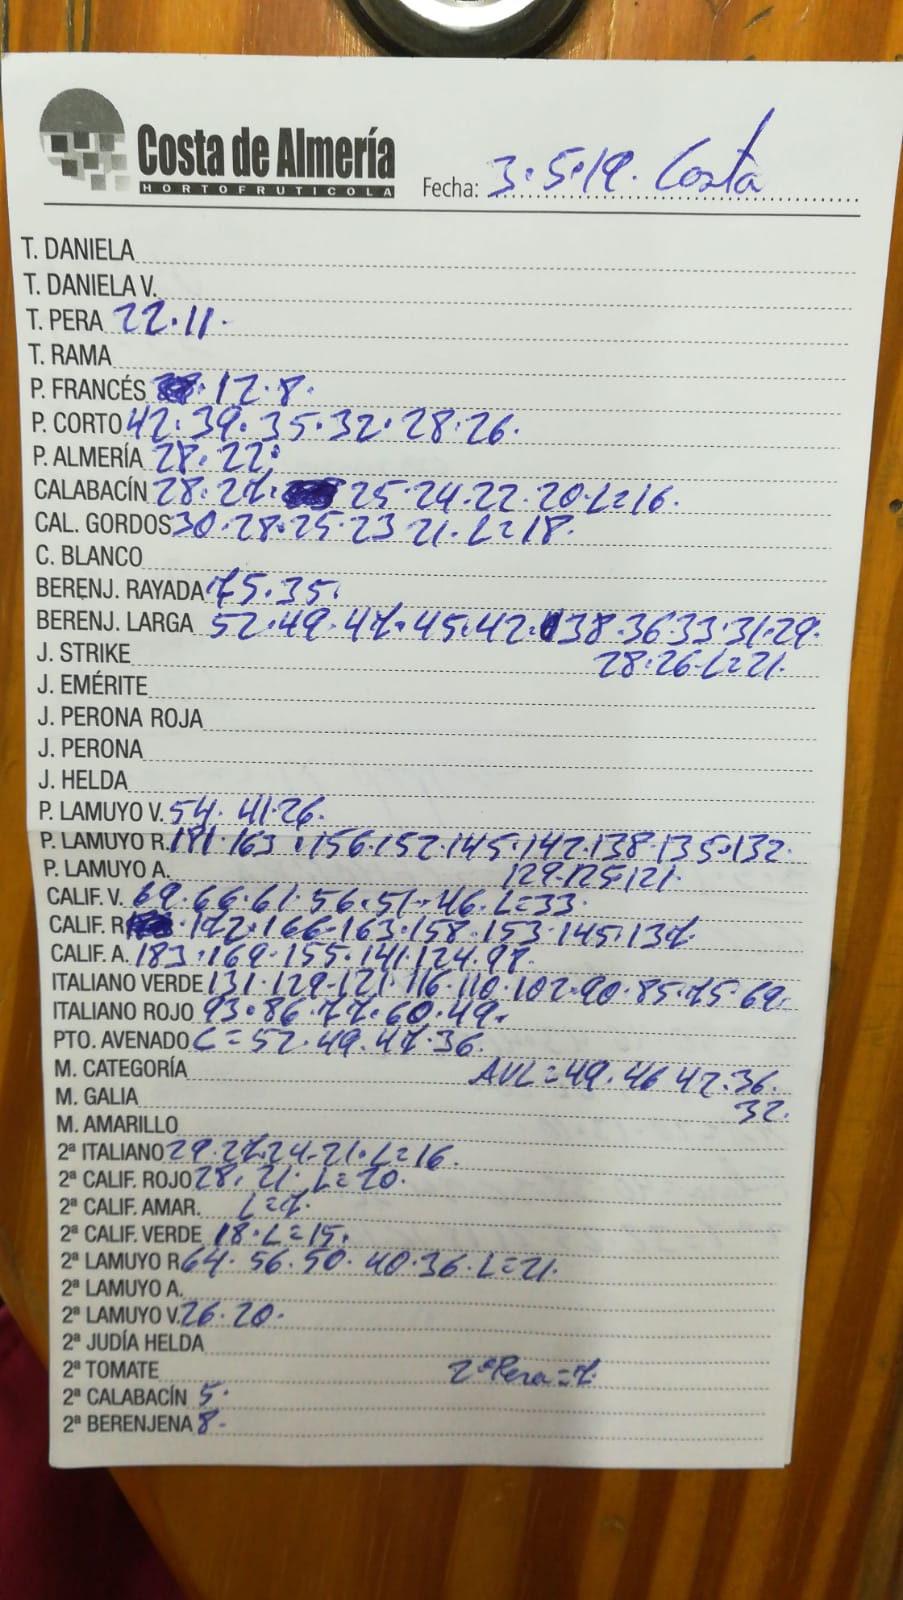 Costa de Almería
HORTOFRUTICOLA
Fecha: 3.5.19. Costa
T. DANIELA
T. DANIELA V.
T. PERA 22.11.
T. RAMA
P. FRANCÉS 12.8.
P. CORTO 42.39.35.32.28.26.
P. ALMERÍA 28.22.
CALABACÍN 28.27. 25.24.22.20.L=16.
CAL. GORDOS 30.28.25.23 21.L=18.
C. BLANCO
BERENJ. RAYADA 75.35.
BERENJ. LARGA 52.49.47.45.42. 38.36.33.31.29.
J. STRIKE 28.26-L=21.
J. EMÉRITE
J. PERONA ROJA
J. PERONA
J. HELDA
P. LAMUYO V. 54. 41.26.
P. LAMUYO R. 163.156.152.145.142.138.135.132.
P. LAMUYO A. 129.125.121.
CALIF. V. 69.66.61.56.51.46.L=33.
CALIF. R. 172.166.163.158.153.145.137.
CALIF. A. 183.169.155.141.124.97.
ITALIANO VERDE 131.129.121.116.110.102.90.85.75.69.
ITALIANO ROJO 93.86.77.60.49.
PTO. AVENADO C=52.49.47.36.
M. CATEGORÍA =49.46 42.36.
M. GALIA 32.
M. AMARILLO
2ª ITALIANO 29.27.24-21.L=16.
2ª CALIF. ROJO 28.21. L=20.
2ª CALIF. AMAR. L=7.
2ª CALIF. VERDE 18.L=15.
2ª LAMUYO R. 64.56.50.40.36.L=21.
2ª LAMUYO A.
2ª LAMUYO V. 26.20.
2ª JUDÍA HELDA
2ª TOMATE 2ªPera=7.
2ª CALABACÍN 5.
2ª BERENJENA 8-